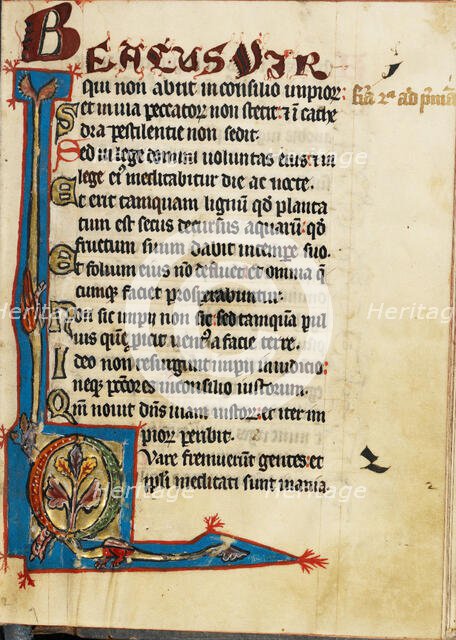 BEATUS VIR
qui non abiit in consilio impior:
Et in via peccator non stetit: et in cathe
dra pestilentie non sedit.
Sed in lege domini voluntas eius et in
lege eius meditabitur die ac nocte.
Et erit tamquam lignum qd planta
tum est secus decursus aquaru: qd
fructum suum dabit in tempe suo.
Et folium eius no defluet: et omnia q
cumque faciet prosperabuntur.
Non sic impii non sic: sed tamqua pul
uis que picit ventus a facie terre.
Ideo non resurgunt impii in iudicio:
neq peccores in consilio iustorum.
Qm nouit dns viam iustor: et iter im
pior peribit.
Quare fremuerunt gentes: et
ipli meditati sunt inania.
fia 2a ad pmam
Heritage
Heritage
Heritage
Heritage